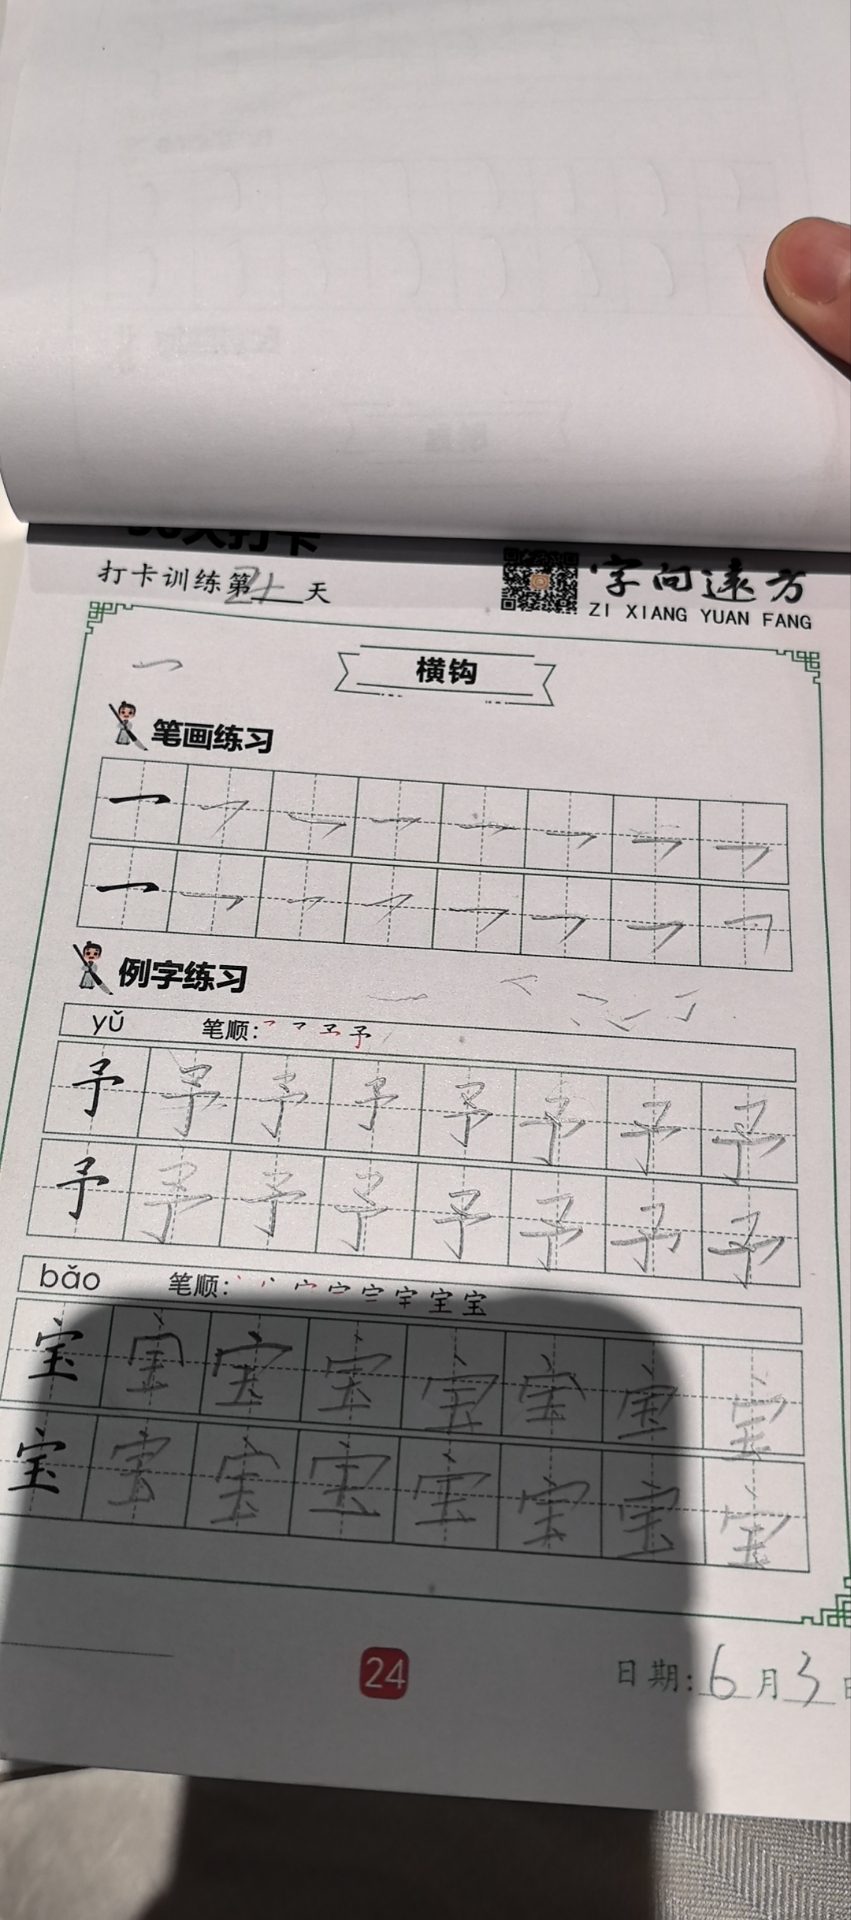 打卡训练第21天
字向远方
ZI XIANG YUAN FANG
横钩
笔画练习
例字练习
yǔ 笔顺:
予 予 予 予 予 予 予 予
予 予 予 予 予 予 予 予
bǎo 笔顺:
宝 宝 宝 宝 宝 宝 宝 宝
宝 宝 宝 宝 宝 宝 宝 宝
24
日期:6月3日